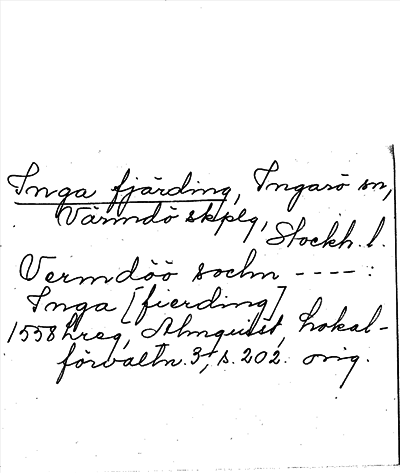 Inga fjärding, Ingarö sn,
Värmdö skplg,
Stockh. l.
Vermdöö sochn ----:
Inga [fierding]
1558 hreg, Almquist, Lokal-
förvaltn. 3, s. 202. orig.